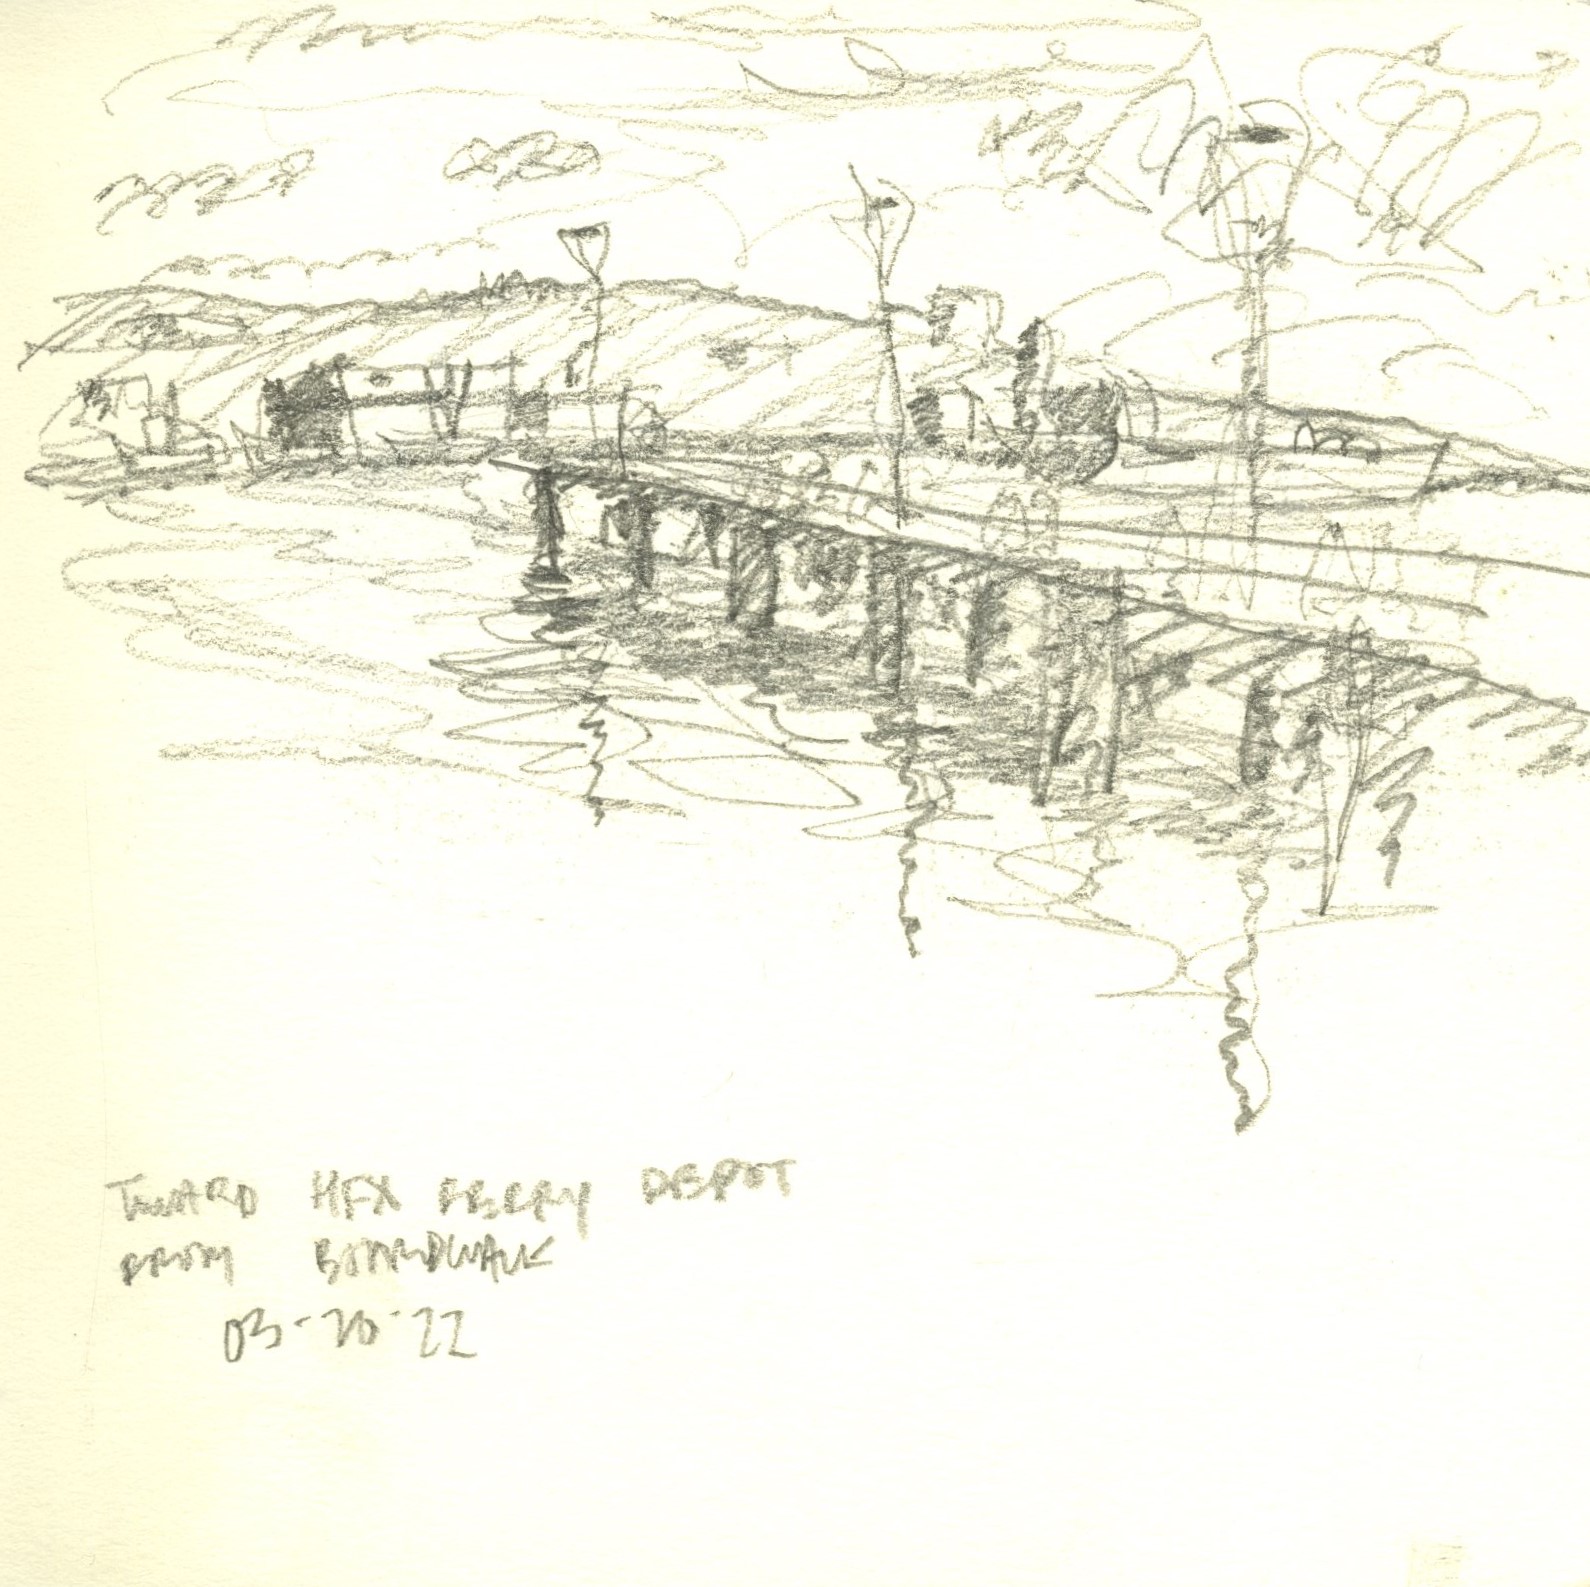 TOWARD HFX FERRY DEPOT
FROM BOARDWALK
03-20-22